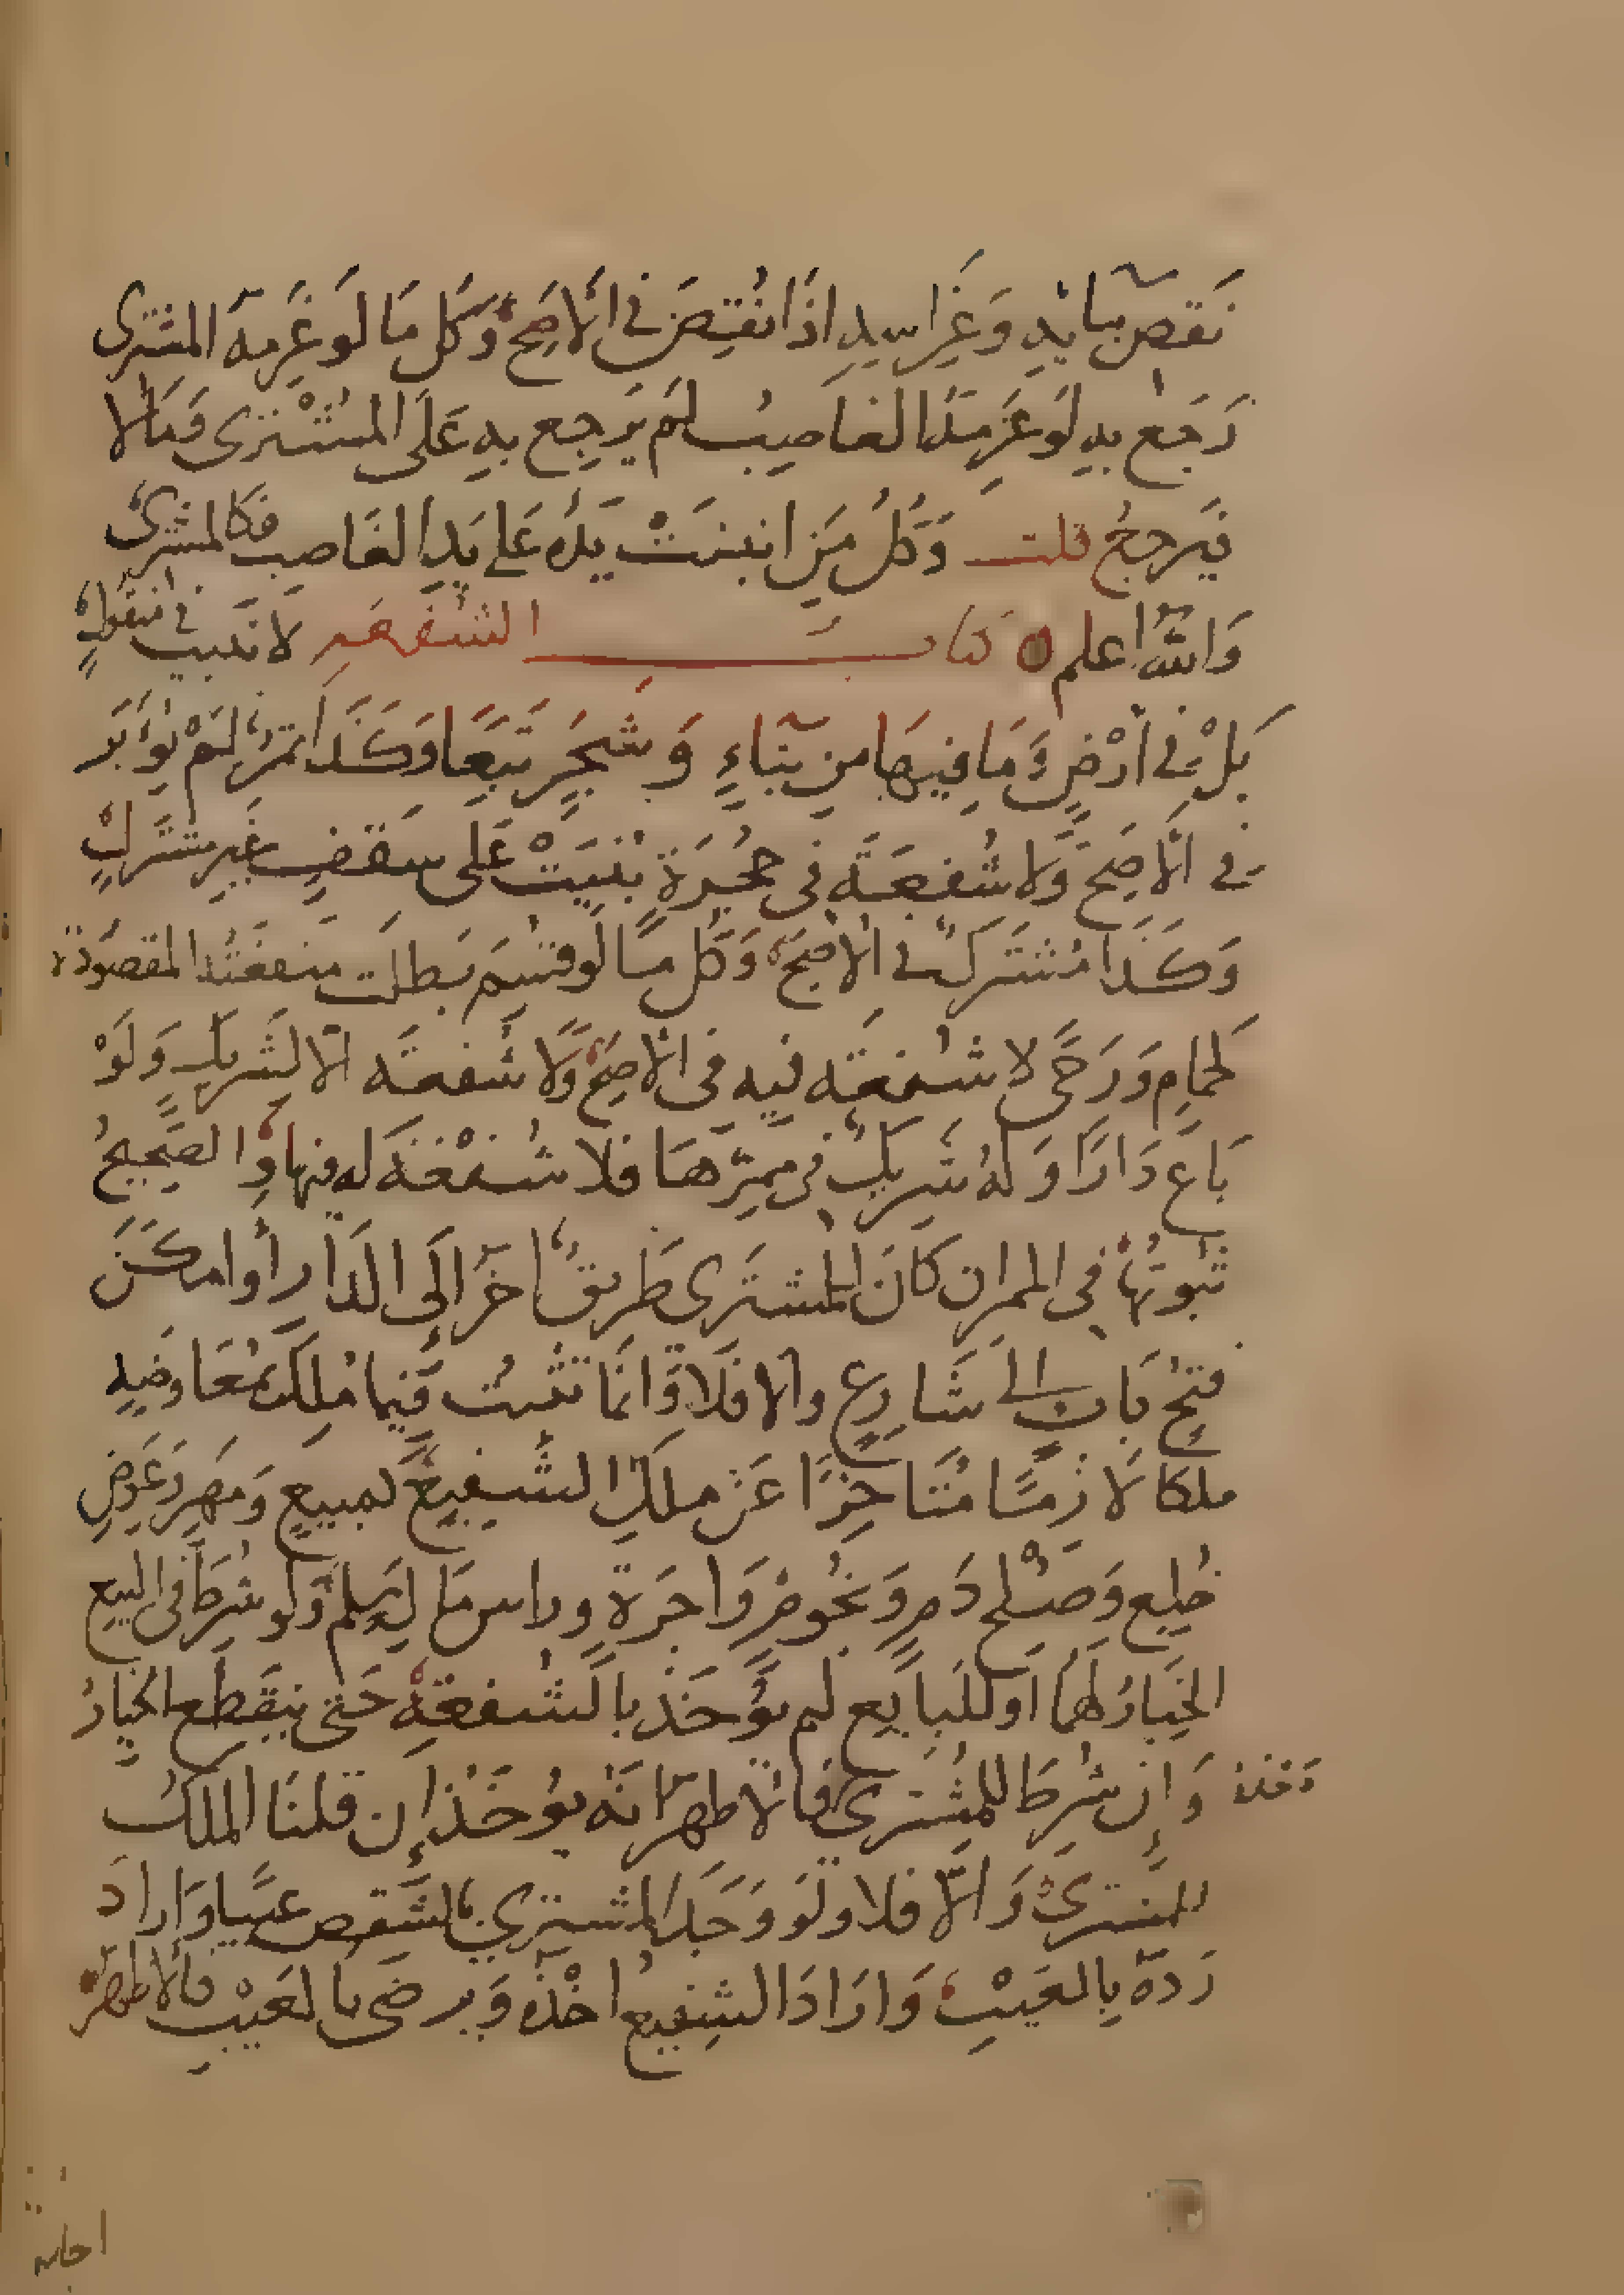 نَقص بنايه وَغِراسه اذَا نُقِضَ في الأصَحّ وَكل مَا لَو غَرِمَه المشترى
رَجَع به لَو غَرِمَهُ الغاصِبُ لم يَرجِع به عَلَى المُشْترى وَمَالا
فيَرجعُ قلت وَكُلُّ مَن انبنتْ يَدُه عَلى يَدِ الغَاصِب فكالمشترى
وَاللّٰه اعلم ۝ كتاب الشفعه لا تثبت في منقولٍ
بَلْ في أرْضٍ وَمَا فيهَا مِن بنَاءٍ وَشجَرٍ تبَعًا وَكَذَا ثمَرٌ لمْ يُؤَبَّر
في الأصَحّ وَلا شُفعَةَ في حُجْرَةٍ بُنيَتْ عَلَى سَقفٍ غَيرِ مشتَركٍ
وَكَذَا مُشتَركٌ في الأصَحّ وَكل مَا لَو قسِمَ بَطلَت منفعَتُه المقصُودَة
كحَمامٍ وَرَحًى لا شُفعَة فيه في الأصَحّ وَلا شُفعَه الّا لِشَريكٍ وَلَوْ
بَاعَ دَارًا وَلهُ شَريكٌ في ممرّهَا فلا شُفْعَة له فيها وَالصَحيحُ
ثبوتُها في الممر ان كانَ للمشتَرى طَريقٌ اخَر إلَى الدَار أو امكَنَ
فتحُ بَابٍ الى شَارعٍ والا فلَا وَانمَا تثبُت فيما مُلِكَ بمُعَاوضَةٍ
ملكا لَازمًا مُتَاخِرًا عَنْ ملكِ الشَفِيع كمبيعٍ وَمَهرٍ وَعِوَضِ
خُلعٍ وَصُلْح دَمٍ وَنجُومٍ وَاجرَةٍ وراس مَال سَلم وَلَو شُرِطَ في البيع
الخيَارُ لَهُمَا أو للبايع لم يُؤخَذ بالشُفعَةِ حَتى ينقَطِعَ الخيارُ
وَإن شُرِطَ للمُشترِي فالأظهر أنَّه يُؤخَذ إن قلنَا الملكُ
للمشتري وَالّا فلا ولَو وَجَدَ المشترِي بالشِقص عيبًا وَارادَ
رَدهُ بالعَيْبِ وَارادَ الشفِيع أخْذه وَيرضَى بالعَيْب فالأظهَرُ